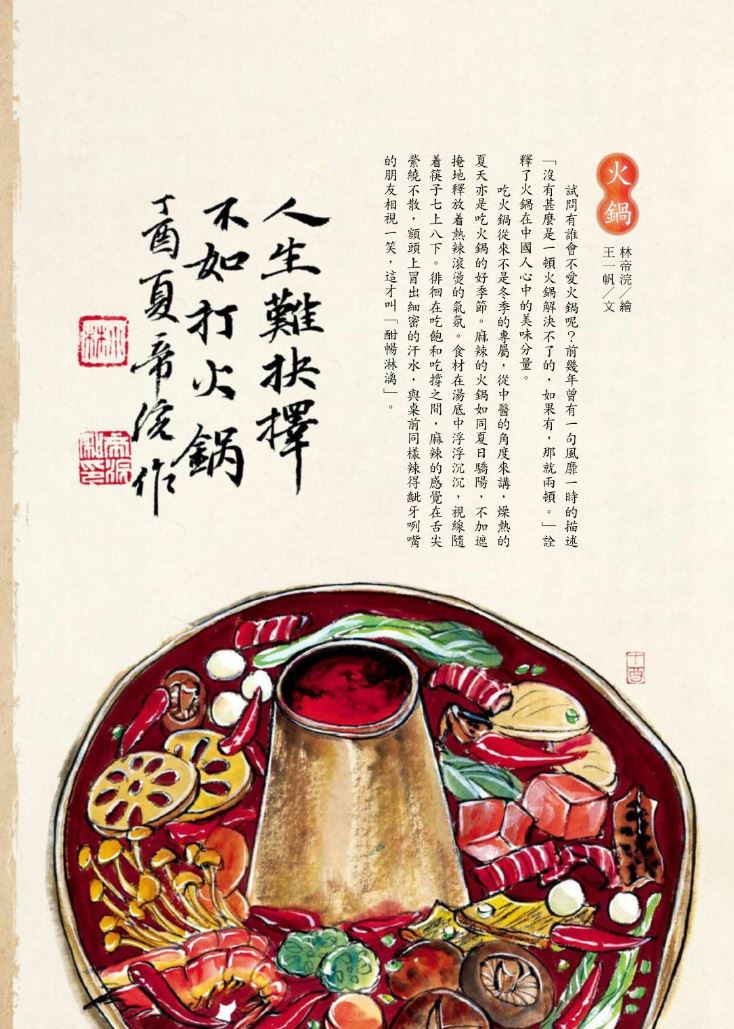 火鍋
林帝浣／繪
王一帆／文
試問有誰會不愛火鍋呢？前幾年曾有一句風靡一時的描述
「沒有甚麼是一頓火鍋解決不了的，如果有，那就兩頓。」詮
釋了火鍋在中國人心中的美味分量。
吃火鍋從來不是冬季的專屬，從中醫的角度來講，燥熱的
夏天亦是吃火鍋的好季節。麻辣的火鍋如同夏日驕陽，不加遮
掩地釋放着熱辣滾燙的氣氛。食材在湯底中浮浮沉沉，視線隨
着筷子七上八下。徘徊在吃飽和吃撐之間，麻辣的感覺在舌尖
縈繞不散，額頭上冒出細密的汗水，與桌前同樣辣得齜牙咧嘴
的朋友相視一笑，這才叫「酣暢淋漓」。
人生難抉擇
不如打火鍋
丁酉夏帝浣作